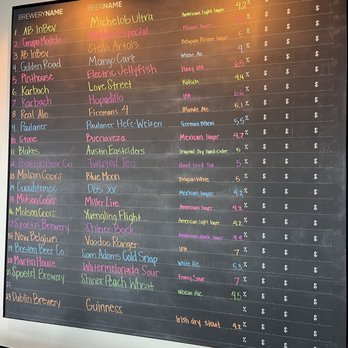 BREWERYNAME BEERNAME
1 AB InBev Michelob Ultra American light lager 4.2 $ $ $
2 Grupo Modelo Especial $ $ $
3 AB InBev Stella Artois Belgium Pilsner lager 5 $ $ $
4 Golden Road Mango Cart Wheat Ale 4 $ $ $
5 Pinthouse Electric Jellyfish Hazy IPA 6.5 $ $ $
6 Karbach Love Street Kolsch 4.9 $ $ $
7 Karbach Hopadillo IPA 6.6 $ $ $
8 Real Ale Firemans 4 Blonde Ale 5.1 $ $ $
9 Paulaner Paulaner Hefe-Weizen German Wheat 5.5 $ $ $
10 Stone Buenaveza Mexican lager 4.7 $ $ $
11 Blakes Austin Eastciders Original Dry hard cider 5 $ $ $
12 Beer Co Twisted Tea Hard Iced Tea 5 $ $ $
13 Molson Coors Blue Moon Belgian White 5 $ $ $
14 Cuauhtemoc Dos XX Mexican lager 4.2 $ $ $
15 Molson Coors Miller Lite American lager 4.2 $ $ $
16 Molson Coors Yuengling Flight American light lager 4.2 $ $ $
17 Spoetzl Brewery Shiner Bock American dark lager 4.4 $ $ $
18 New Belgium Voodoo Ranger IPA 7 $ $ $
19 Boston Beer Co Sam Adams Cold Snap White Ale 5.3 $ $ $
20 Martin House Watermelonada Sour Fruity Sour 7 $ $ $
21 Spoetzl Brewery Shiner Peach Wheat Wheat Ale 4.5 $ $ $
23 Dublin Brewery Guinness Irish dry stout 4.2 $ $ $